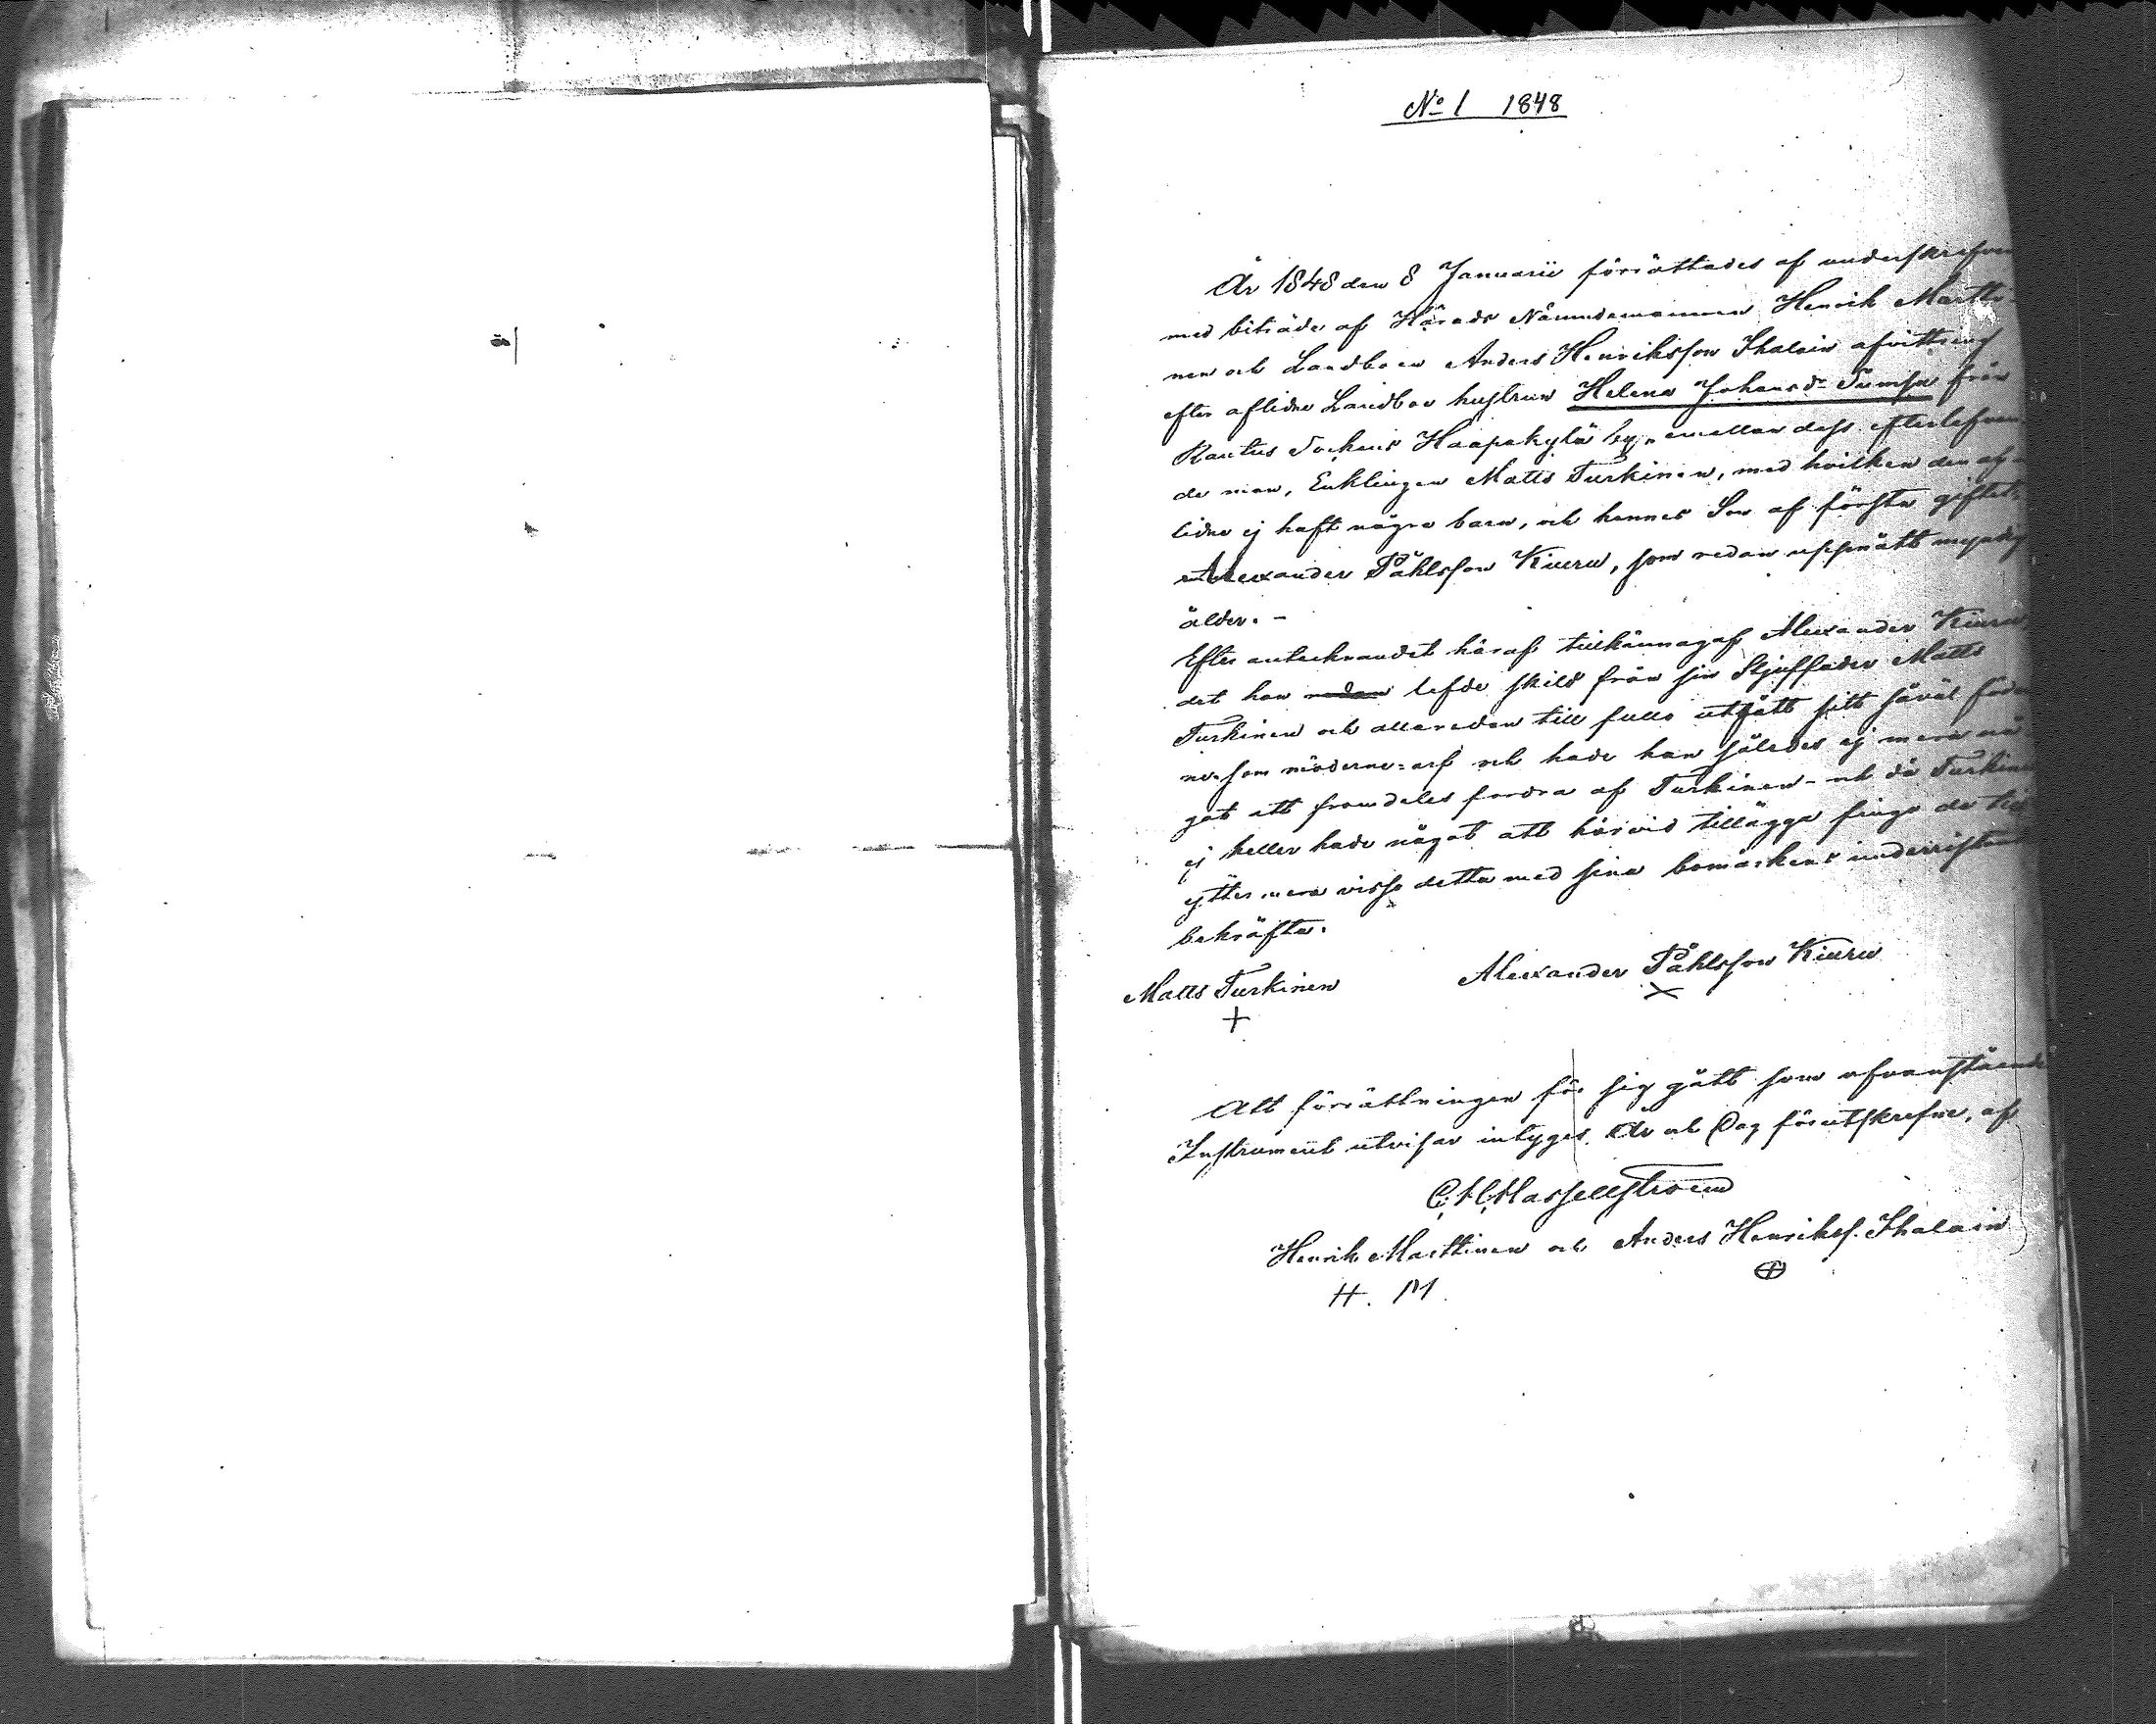 No 1 1848
År 1848 den 8 Januarii förrättades af underskrefven
med biträde af Härads Nämndemannen Henrik Martti-
nen och Landboen Anders Henriksson Ihalain afvittring
efter aflidne Landboe hustrun Helena Johansdr Suursu från
Rautus Sockens Haapakylä by, emellan dess efterlefvan
de man, Enklingen Matts Turkinen, med hvilken den af
lidne ej haft några barn, och hennes Son af första giftet
Alexander Påhlsson Kiuru, som redan uppnått myndig
ålder. –
Efter antecknandet häraf tillkännagaf Alexander Kiuru
det han redan lefde skild från sin Stjuffader Matts
Turkinen och allaredan till fullo utfått sitt såväl fäder
ne- som möderne-arf och hade han således ej mera nå
got att framdeles fordra af Turkinen – och då Turkinen
ej heller hade något att härvid tillägga fingo de till
yttermera visso detta med sina bomärkens underristande
bekräfta.
Matts Turkinen Alexander Påhlsson Kiuru
Att förrättningen för sig gått som ofvanstående
Instrument utvisar intyges. År och Dag förutskrefne, af
Henrik Marttinen och Anders Henrikss. Ihalain
H. M.